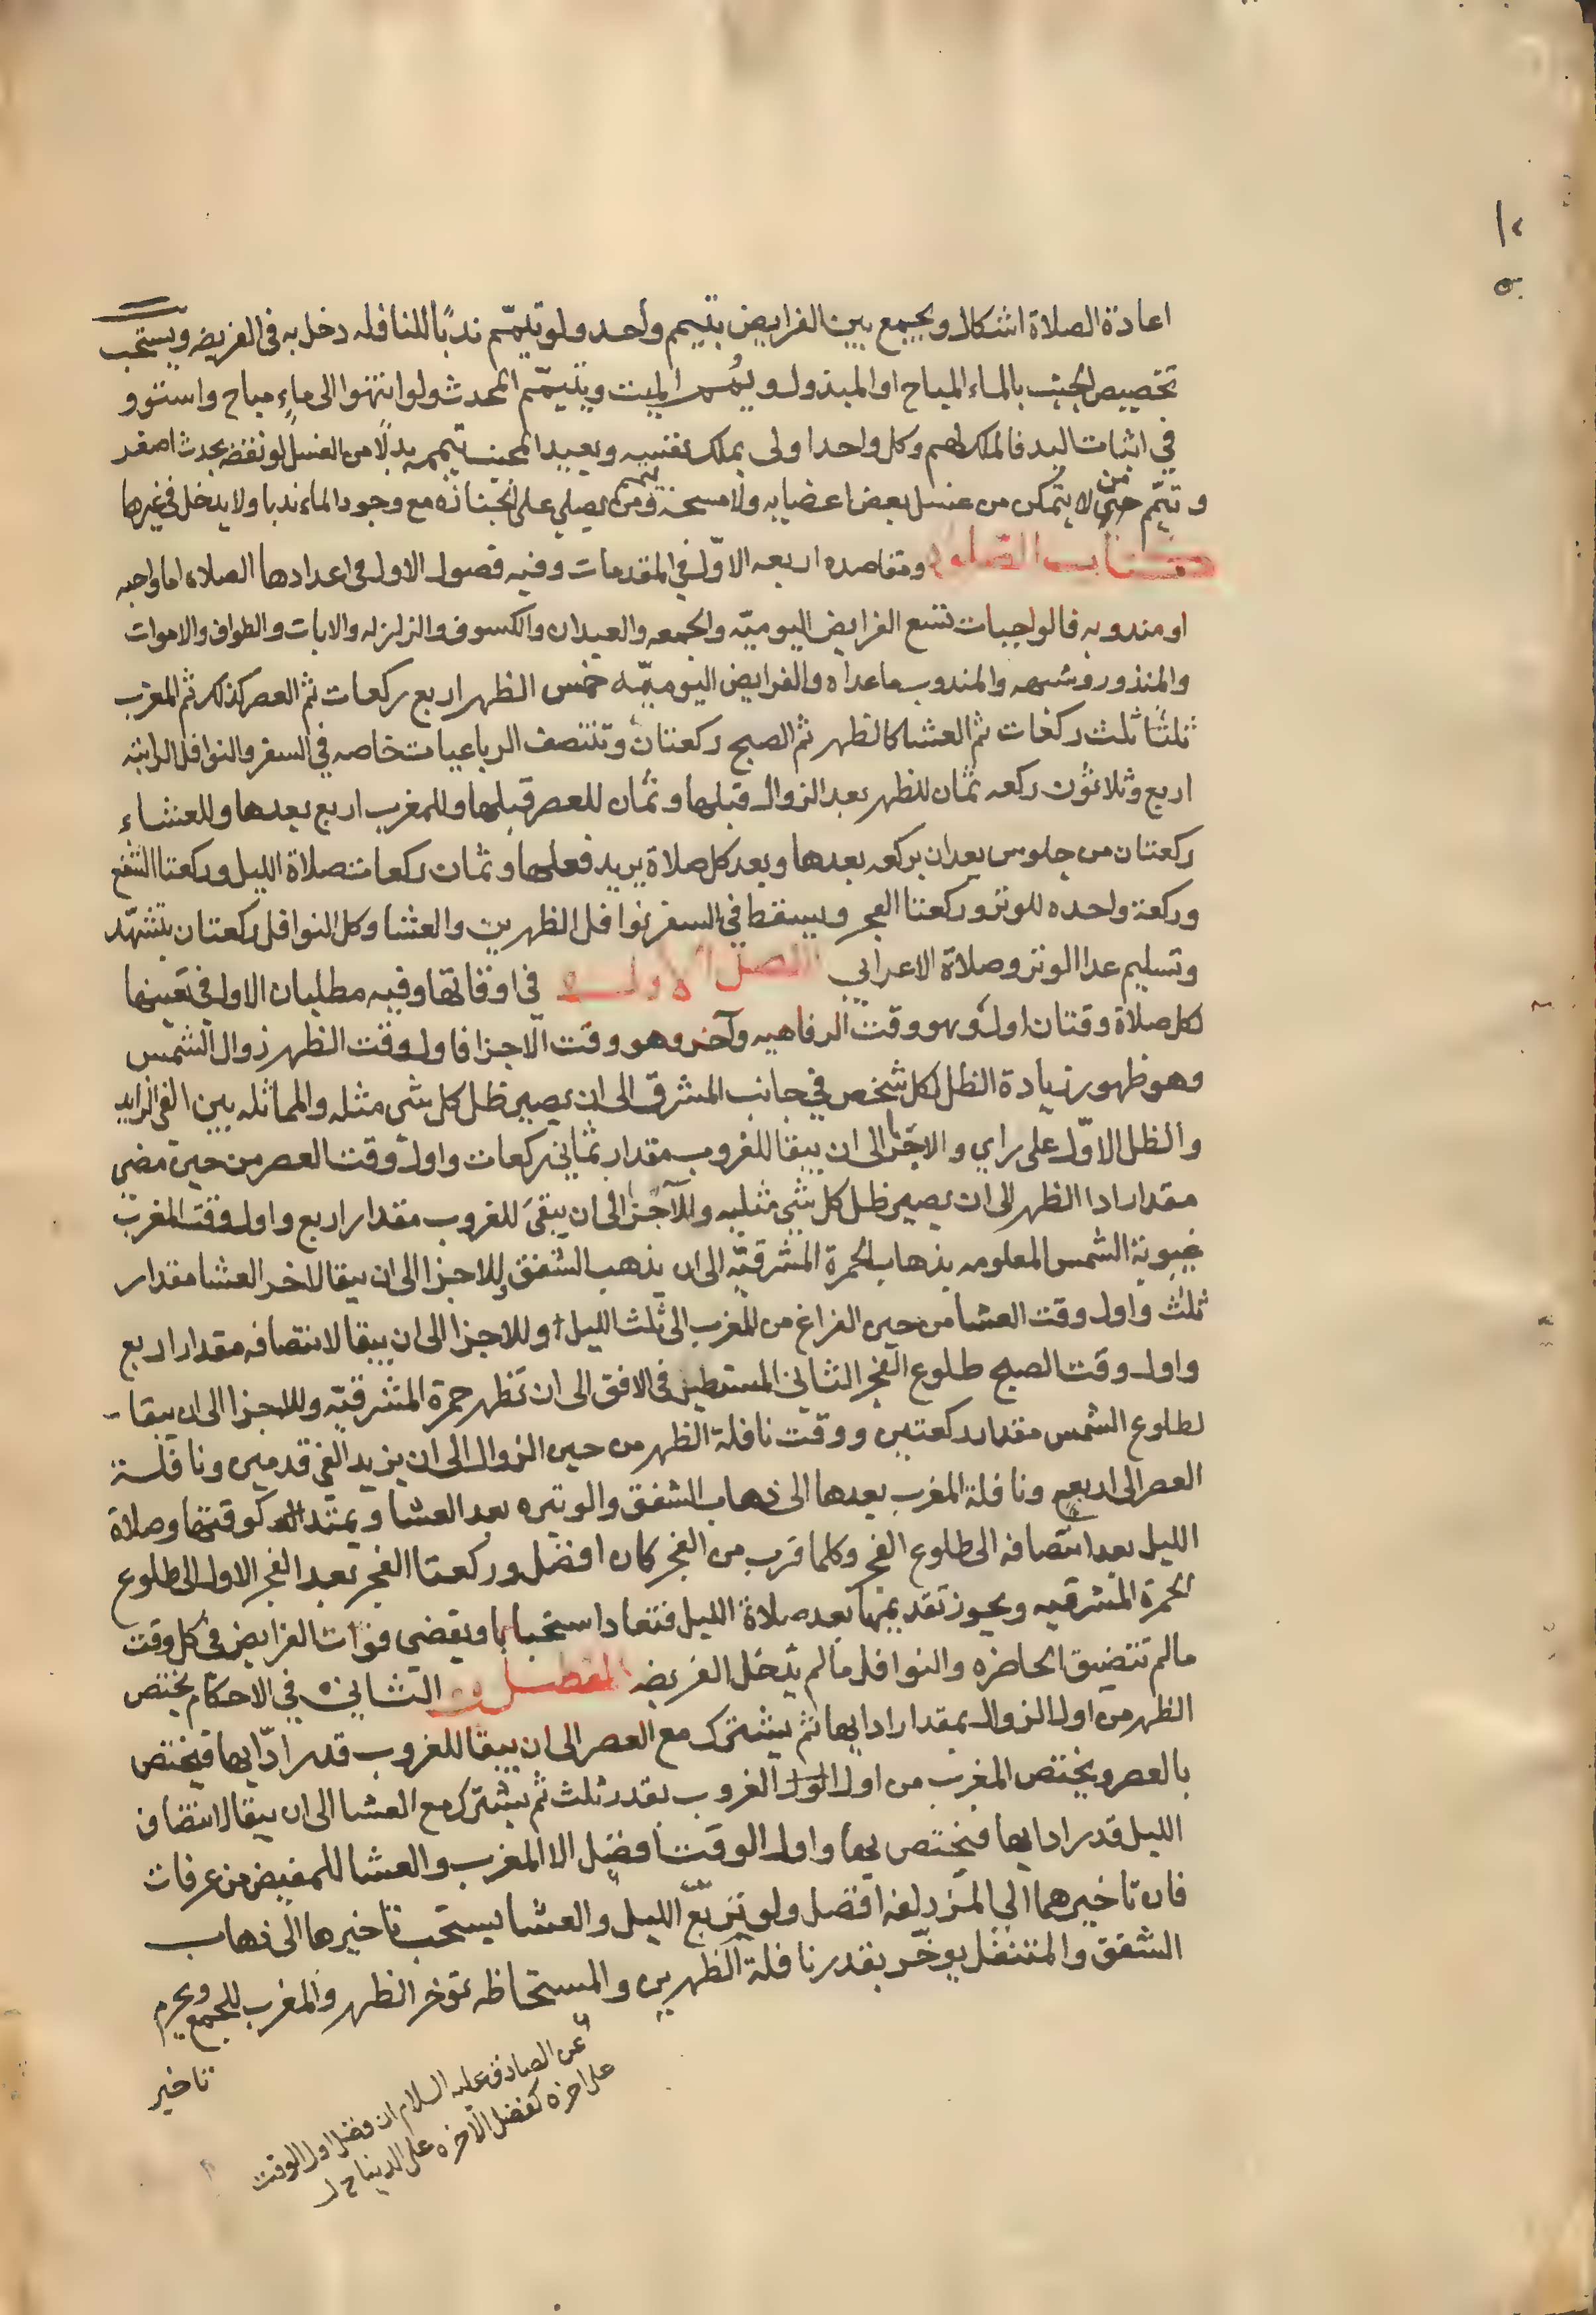 اعادة الصلاة اشكال ويجمع بين الفرايض بتيمم واحد ولو تيمّم ندبًا للنافله دخل به فى الفريضه ويستحب
تخصيص الجنب بالماء المباح او المبذول وييمم الميت ويتيمّم المحدث ولو انتهوا الى ماءٍ مباح واستوو
في اثبات اليد فالملك لهم وكل واحد اولى بملك نفسه ويعيد المجنب تيممه بدلًا من الغسل لو نقضه بحدث اصغر
و تيمّم من لا يتمكن من غسل بعض اعضايه ولا مسحه ومن يصلي على الجنازه مع وجود الماء ندبا ولا يدخل فى غيرها
كتاب الصلوة ومقاصده اربعه الاوّل في المقدمات وفيه فصول الاول فى اعدادها الصلاه اما واجبه
او مندوبه فالواجبات تسع الفرايض اليوميّه والجمعه والعيدان والكسوف والزلزله والايات والطواف والاموات
والمنذور وشبهه والمندوب ماعداه والفرايض اليوميّه خمس الظهر اربع ركعات ثم العصر كذلك ثم المغرب
ثلثا ثلث ركعات ثم العشا كالظهر ثم الصبح ركعتان وتنتصف الرباعيات خاصه في السفر والنوافل الراتبه
اربع وثلاثون ركعه ثمان للظهر بعد الزوال قبلها وثمان للعصر قبلها وللمغرب اربع بعدها وللعشاء
ركعتان من جلوس يعدان بركعه بعدها وبعد كل صلاة يريد فعلها وثمان ركعات صلاة الليل وركعتا الشفع
وركعة واحده للوتر وركعتا الفجر ويسقط في السفر نوافل الظهرين والعشا وكل النوافل ركعتان بتشهّد
وتسليم عدا الوتر وصلاة الاعرابي الفصل الاول فى اوقاتها وفيه مطلبان الاول فى تعيينها
لكل صلاة وقتان اول وهو وقت الرفاهيه وآخر وهو وقت الاجزا فاول وقت الظهر زوال الشمس
وهو ظهور زيادة الظل لكل شخص في جانب المشرق الى ان يصير ظل كل شى مثله والمماثله بين الفى الزايد
والظل الاوّل على راي والاجزا الى ان يبقا للغروب مقدار ثمانى ركعات واول وقت العصر من حين مضى
مقدار ادا الظهر الى ان يصير ظل كل شى مثليه وللآجزا الى ان يبقى للغروب مقدار اربع واول وقت المغرب
غيبوبة الشمس المعلومه بذهاب الحمرة المشرقيّه الى ان يذهب الشفق وللاجزا الى ان يبقا لاخر العشا مقدار
ثلث واول وقت العشا من حين الفراغ من المغرب الى ثلث الليل وللاجزا الى ان يبقا لانتصافه مقدار اربع
واول وقت الصبح طلوع الفجر الثانى المستطير فى الافق الى ان تظهر حمرة المشرقيّه وللاجزا الى ان يبقا
لطلوع الشمس مقدار ركعتين ووقت نافلة الظهر من حين الزوال الى ان يزيد الفى قدمين ونافلة
العصر الى اربع ونافلة المغرب بعدها الى ذهاب الشفق والوتيره بعد العشا ويمتد كوقتها وصلاة
الليل بعد انتصافه الى طلوع الفجر وكلما قرب من الفجر كان افضل وركعتا الفجر بعد الفجر الاول الى طلوع
الحمرة المشرقيه ويجوز تقديمها بعد صلاة الليل فتعاد استحبابا ويقضى فوات الفرايض فى كل وقت
مالم تتضيق الحاضره والنوافل مالم يدخل الفريضه الثانى في الاحكام يختص
الظهر من اول الزوال بمقدار ادايها ثم يشترك مع العصر الى ان يبقا للغروب قدر ادّايها فيختص
بالعصر ويختص المغرب من اول الغروب بقدر ثلث ثم يشترك مع العشا الى ان يبقا لانتصاف
الليل قدر ادايها فيختص بها واول الوقت افضل الا المغرب والعشا للمفيض من عرفات
فان تاخيرهما الى المزدلفه افضل ولو تربّع الليل والعشا يستحب تاخيرها الى ذهاب
الشفق والمتنفل يوخّر بقدر نافلة الظهرين والمستحاظه توخر الظهر والمغرب للجمع ويحرم
تاخير
عن الصادق عليه السلام ان فضل اول الوقت
على اخره كفضل الاخره على الدنيا